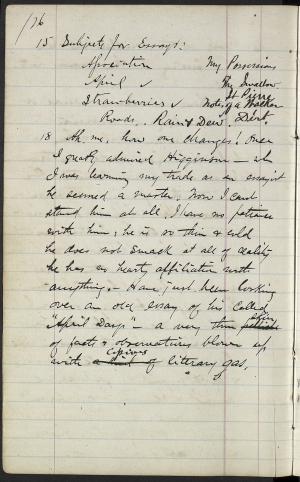 /76
15 Subjects for Essays:
Association My Possessions
April ✓ The Swallow
Strawberries ✓ Notes of a Walker
Roads. Rain & Dew. Dirt.
18 Ah me, how one changes! Once
I greatly admired Higginson – when
I was learning my trade as an essayist
he seemed a master. Now I cant
stand him at all, I have no patience
with him; he is so thin & cold
he does not smack at all of reality
he has no hearty affiliation with
anything. – Have just been looking
over an old essay of his called
"April Days" – a very thin skin
of facts & observations blown up
with copious of literary gas.